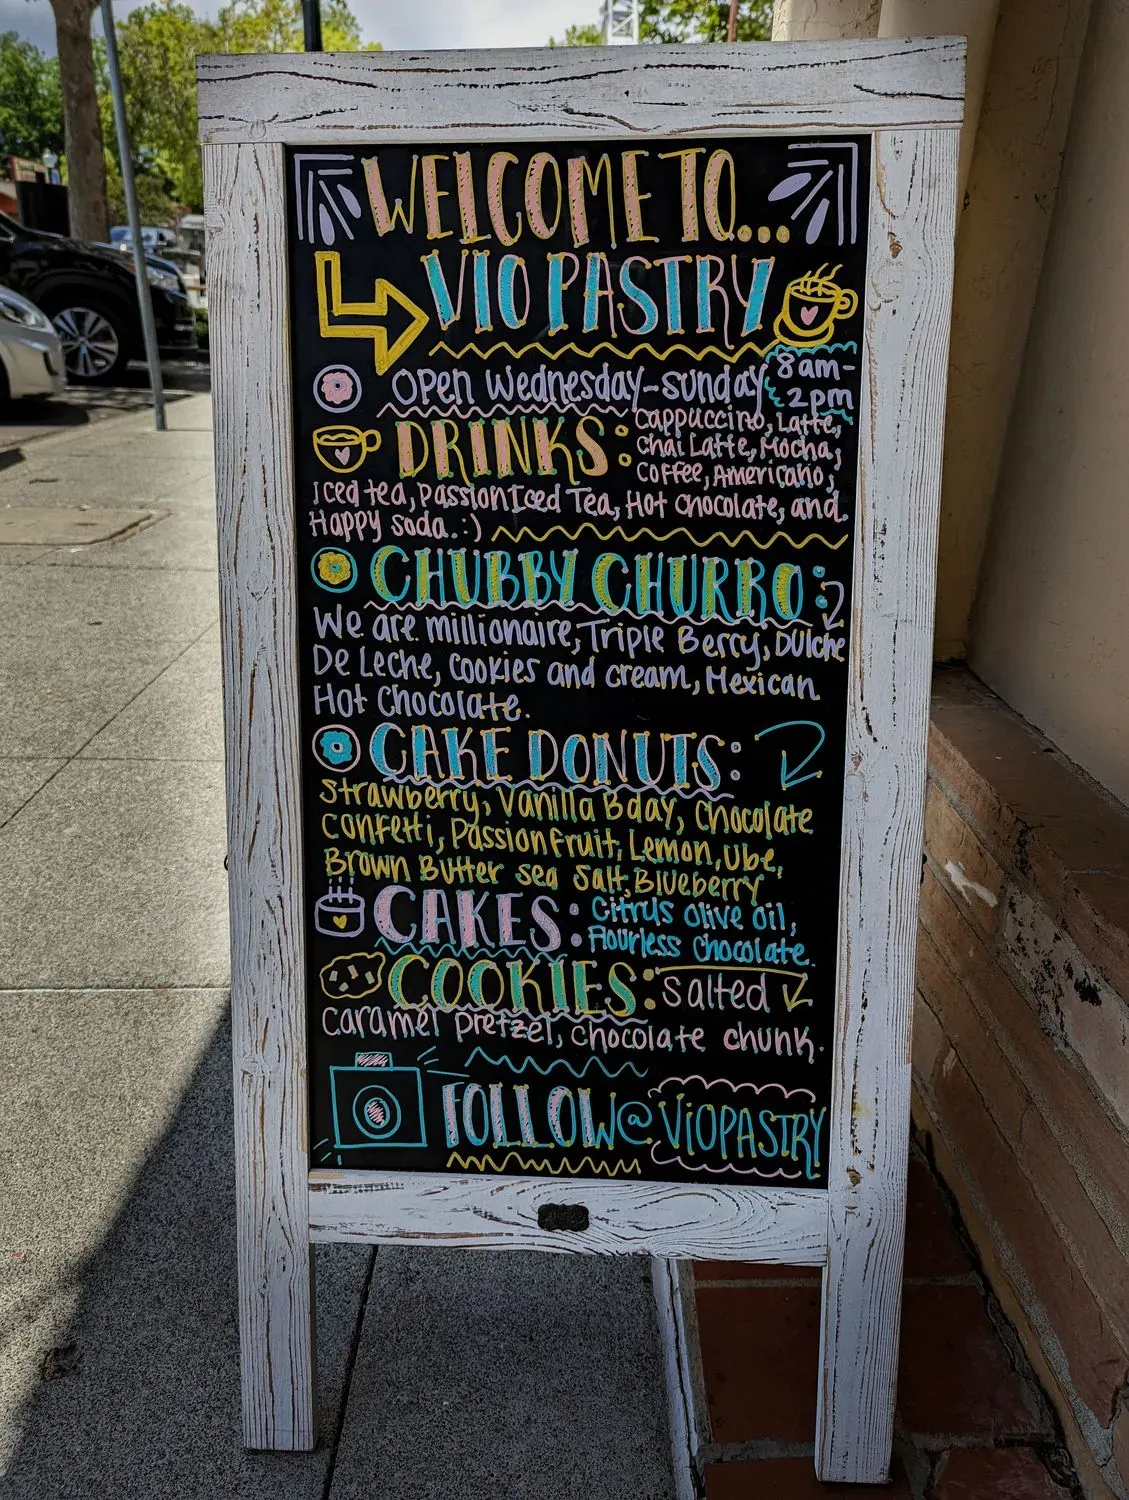 WELCOME TO...
VIO PASTRY
Open Wednesday-Sunday 8am-
2pm
DRINKS: Cappuccino, Latte,
Chai Latte, Mocha,
Coffee, Americano,
Iced tea, Passion Iced Tea, Hot Chocolate, and
Happy soda. :)
CHUBBY CHURRO:
We are millionaire, Triple Berry, Dulche
De Leche, Cookies and cream, Mexican
Hot Chocolate.
CAKE DONUTS:
Strawberry, Vanilla Bday, Chocolate
Confetti, Passion Fruit, Lemon, Ube,
Brown Butter sea salt, Blueberry
CAKES: Citrus olive oil,
Flourless Chocolate.
COOKIES: Salted
Caramel pretzel, Chocolate chunk.
FOLLOW @VIOPASTRY